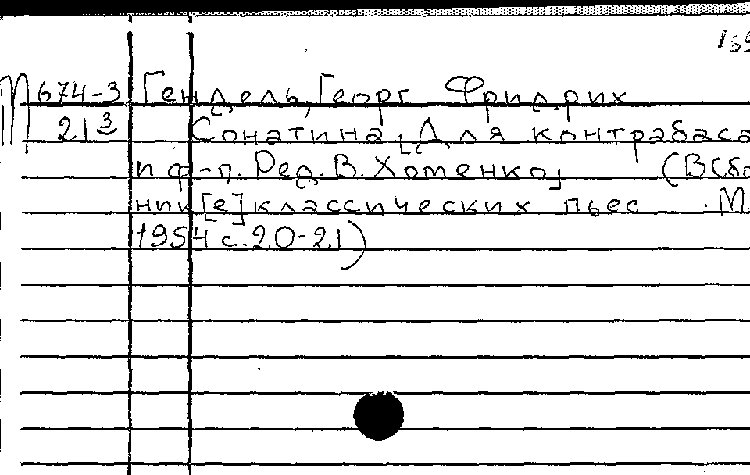 М 674-3 Гендель, Георг Фридрих
21³ Сонатина. [Для контрабаса
и ф-п. Ред. В. Хоменко] (В сбо
ник[е] классических пьес. М.
1954 с. 20-21)